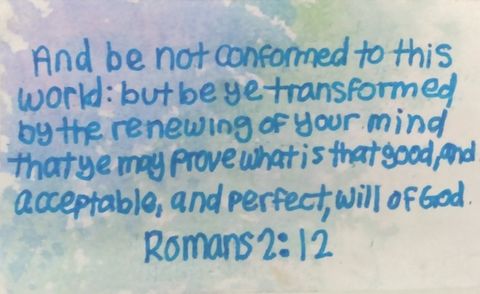 And be not conformed to this
world: but be ye transformed
by the renewing of your mind
that ye may prove what is that good, and
acceptable, and perfect, will of God.
Romans 2:12